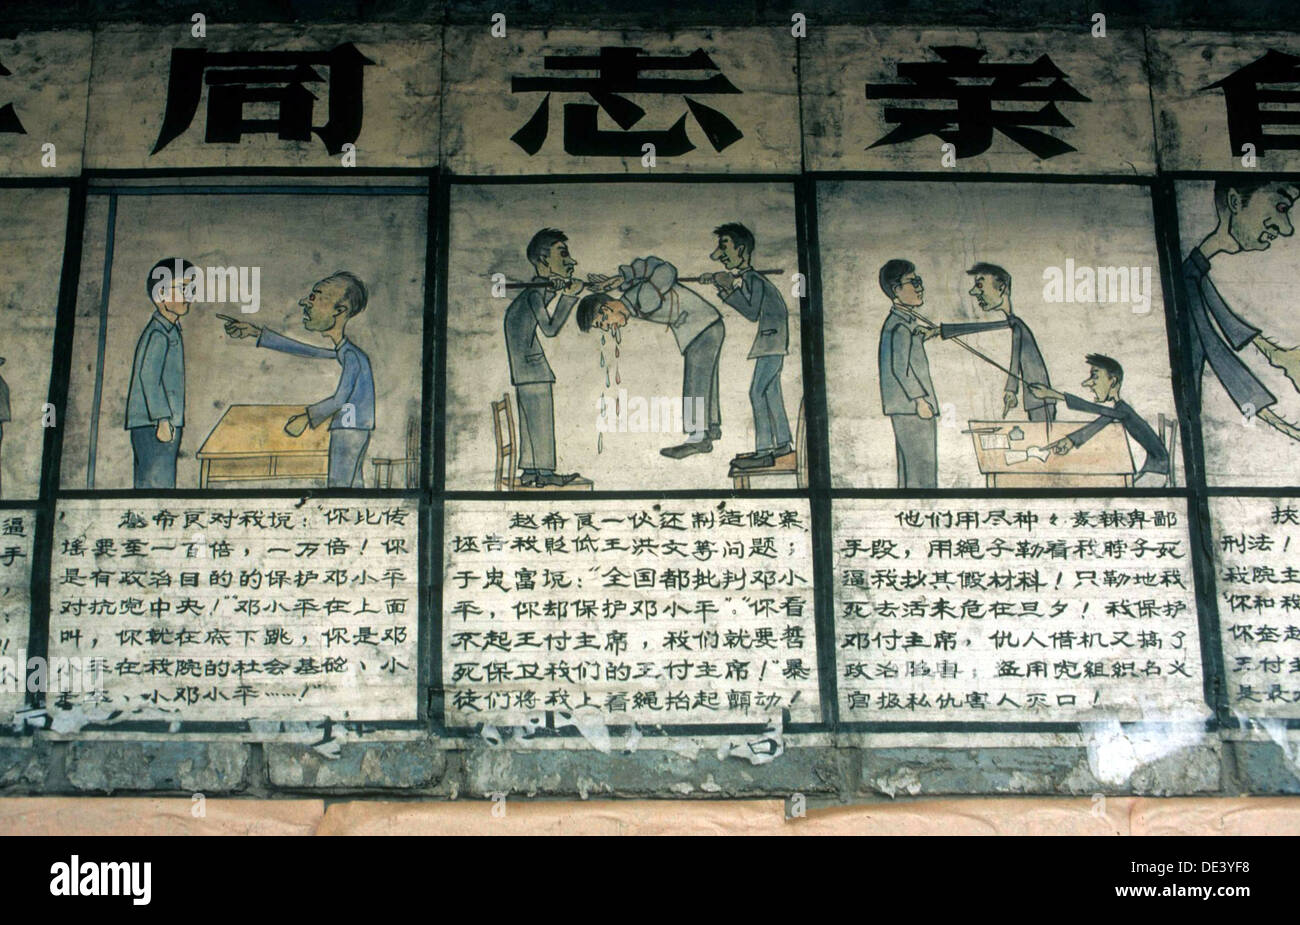 同志亲自
逼
手
，
；
!
赵希良对我说：“你比传
谣要至一百倍，一万倍！你
是有政治目的的保护邓小平
对抗党中央！”邓小平在上面
叫，你就在底下跳，你是邓
小平在我院的社会基础、小
、小邓小平……!”
赵希良一伙还制造假案，
诬告我贬低王洪文等问题；
于忠富说：“全国都批判邓小
平，你却保护邓小平”。“你看
不起王付主席，我们就要誓
死保卫我们的王付主席！”暴
徒们将我上着绳抬起颤动！
他们用尽种々毒辣卑鄙
手段，用绳子勒着我脖子死
逼我抄其假材料！只勒地我
死去活来危在旦夕！我保护
邓付主席，仇人借机又搞了
政治陷害；盗用党组织名义
官报私仇害人灭口！
挟
刑法！
我院主
“你和我
你奎起
王付主
是最大
alamy stock photo
DE3YF8
www.alamy.com